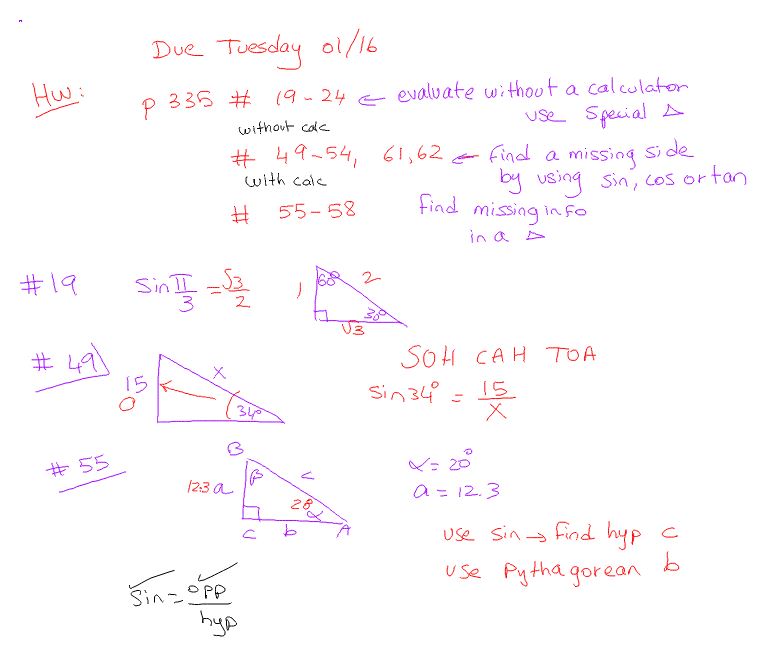 Due Tuesday 01/16
HW: p 335 # 19-24 ← evaluate without a calculator
use special △
without calc
# 49-54, 61,62 ← find a missing side
by using sin, cos or tan
with calc
# 55-58 find missing info
in a △
#19 sin π/3 = √3/2 1 60° 2 30° √3
# 49 15 O x 34°
SOH CAH TOA
sin 34° = 15/x
# 55 B β 12.3 a c 20 α C b A
α = 20°
a = 12.3
use sin → find hyp c
use Pythagorean b
sin = opp/hyp